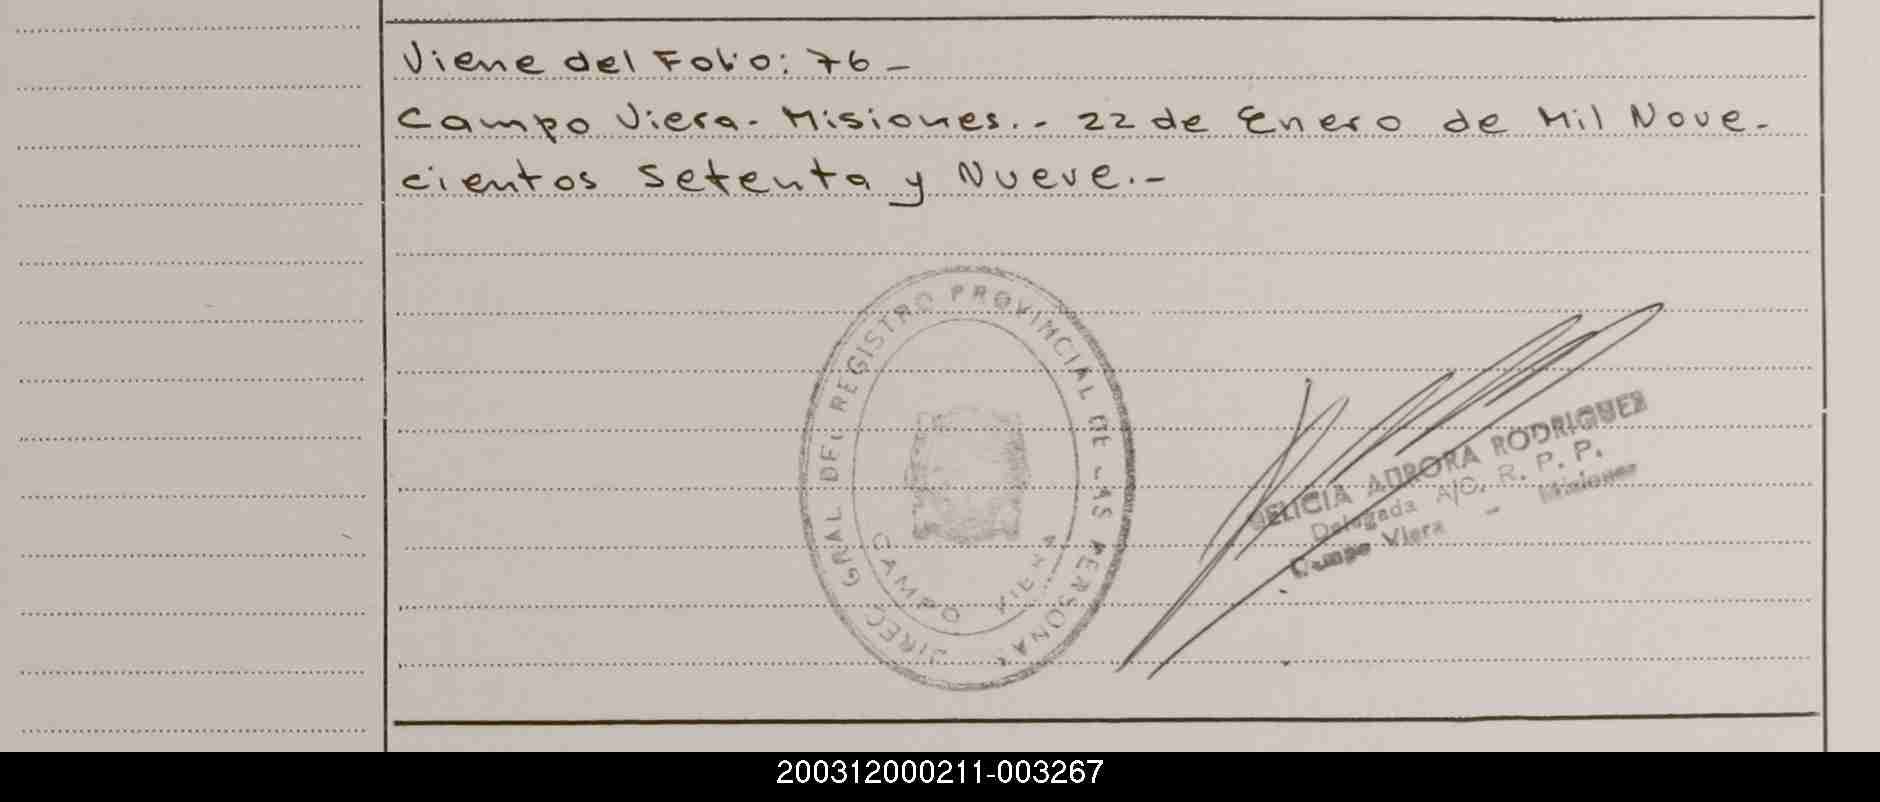 Viene del Folio: 76 -
Campo Viera - Misiones. - 22 de Enero de Mil Nove -
cientos Setenta y Nueve. -
DIREC GRAL DEL REGISTRO PROVINCIAL DE LAS PERSONAS
CAMPO VIERA
DELICIA AURORA RODRIGUEZ
Delegada A/C. R. P. P.
Campo Viera - Misiones
200312000211-003267